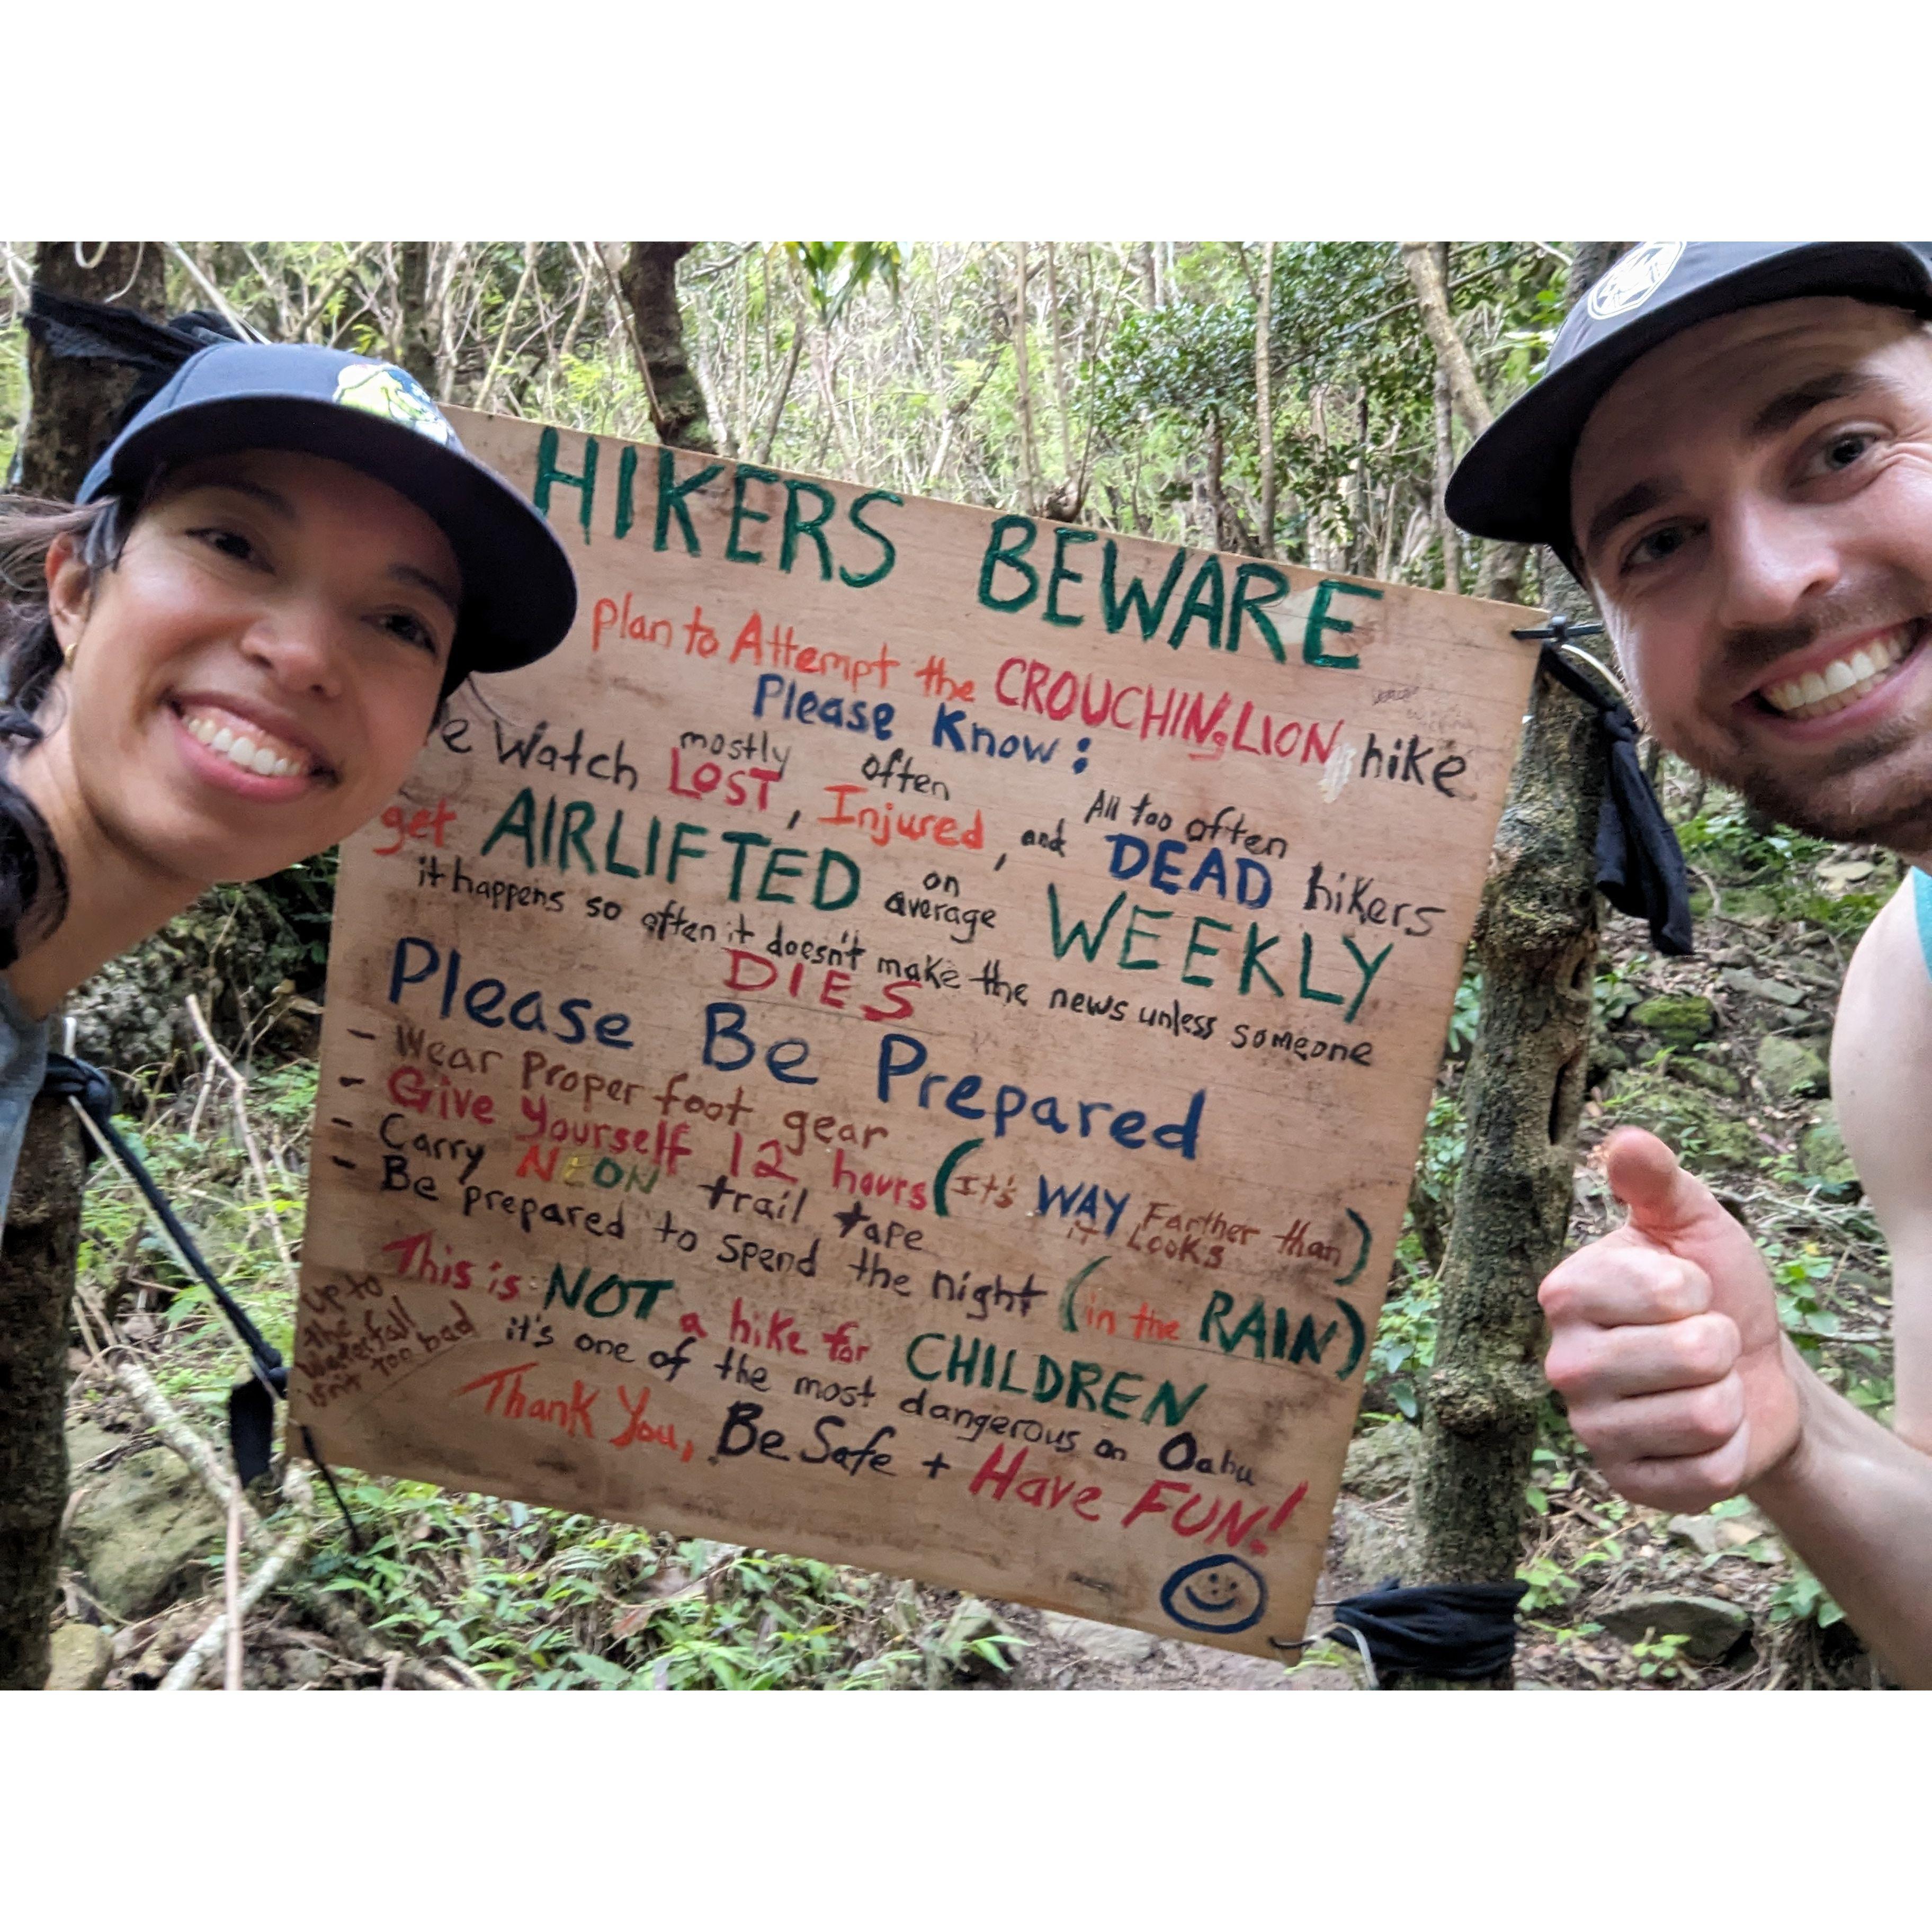 HIKERS BEWARE
plan to Attempt the CROUCHING LION hike
Please Know:
e Watch mostly LOST, often Injured, and All too often DEAD hikers
get AIRLIFTED on average WEEKLY
it happens so often it doesn't make the news unless someone
DIES
Please Be Prepared
- Wear Proper foot gear
- Give Yourself 12 hours (It's WAY Farther than it Looks)
- Carry NEON trail tape
- Be prepared to spend the night (in the RAIN)
This is NOT a hike for CHILDREN
it's one of the most dangerous on Oahu
Thank You, Be Safe + Have FUN!
up to
the
waterfall
isn't too bad